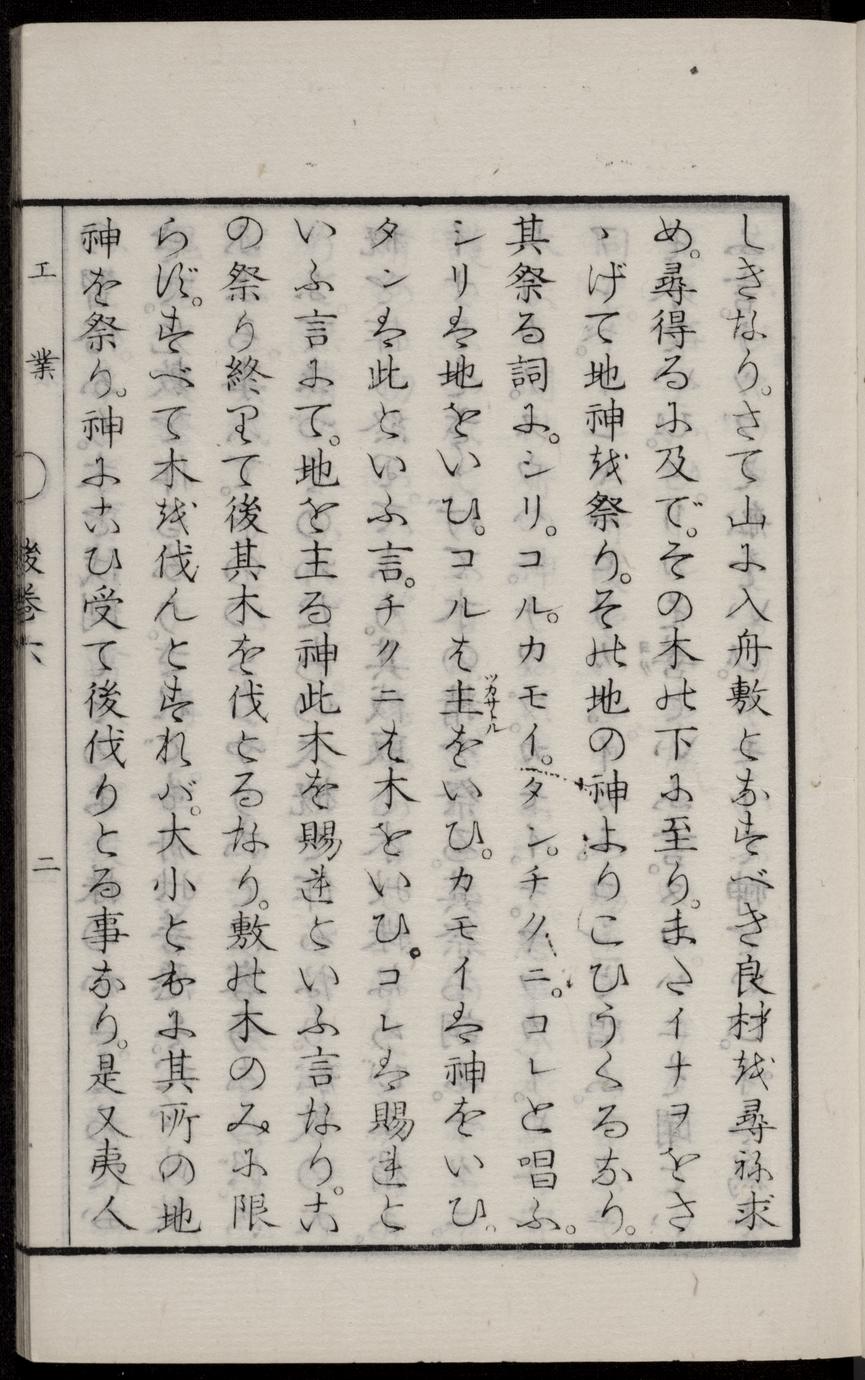 しきなり。さて山に入舟敷となすべき良材を尋ね求
め。尋得るに及で。その木の下に至り。またイナヲをさ
ゝげて地神を祭り。その地の神よりこひうくるなり。
其祭る詞に。シリ。コル。カモイ。タン。チクニ。コレと唱ふ。
シリは地をいひ。コルは主をいひ。カモイは神をいひ。
ツカサトル
タンは此といふ言。チクニは木をいひ。コレは賜まへと
いふ言にて。地を主る神此木を賜まへといふ言なり。こ
の祭り終りて後其木を伐とるなり。敷の木のみに限
らず。すべて木を伐んとすれば。大小ともに其所の地
神を祭り。神にこひ受て後伐りとる事なり。是又夷人
工業 後巻六 二